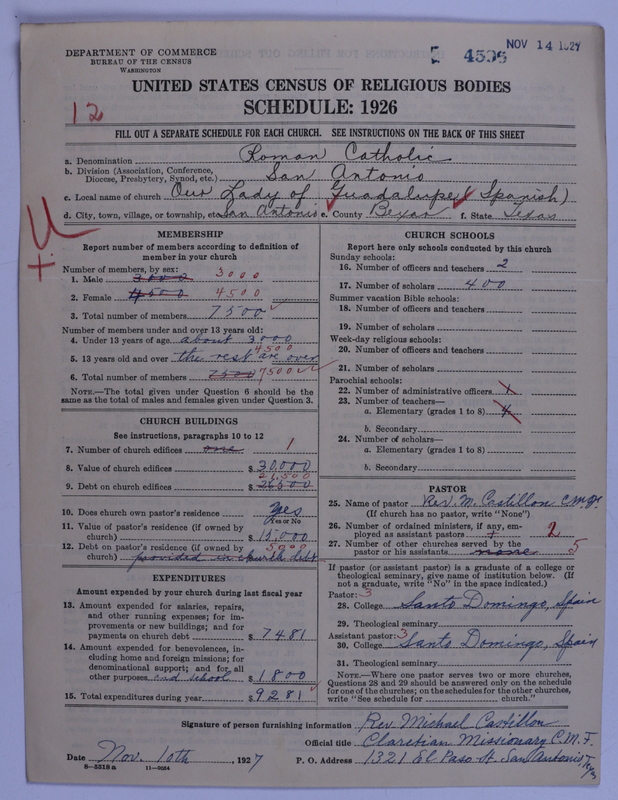 DEPARTMENT OF COMMERCE
BUREAU OF THE CENSUS
WASHINGTON
NOV 14 1927
UNITED STATES CENSUS OF RELIGIOUS BODIES
SCHEDULE: 1926
12
FILL OUT A SEPARATE SCHEDULE FOR EACH CHURCH. SEE INSTRUCTIONS ON THE BACK OF THIS SHEET
a. Denomination Roman Catholic
b. Division (Association, Conference, Diocese, Presbytery, Synod, etc.) San Antonio
c. Local name of church Our Lady of Guadalupe (Spanish)
d. City, town, village, or township, etc. San Antonio e. County Bexar f. State Texas
MEMBERSHIP
Report number of members according to definition of
member in your church
Number of members, by sex:
1. Male 3000 3000
2. Female 4500 4500
3. Total number of members 7500
Number of members under and over 13 years old:
4. Under 13 years of age about 3000
4500
5. 13 years old and over the rest are over
6. Total number of members 7500 7500
NOTE.—The total given under Question 6 should be
same as the total of males and females given under Question 3.
CHURCH BUILDINGS
See instructions, paragraphs 10 to 12
7. Number of church edifices one 1
8. Value of church edifices $ 30,000
21,500
9. Debt on church edifices $ 26500
10. Does church own pastor's residence? Yes
Yes or No
11. Value of pastor's residence (if owned by
church) $ 15,000
12. Debt on pastor's residence (if owned by 5000
church) provided in church debt
EXPENDITURES
Amount expended by your church during last fiscal year
13. Amount expended for salaries, repairs,
and other running expenses; for im-
provements or new buildings; and for
payments on church debt $ 7481
14. Amount expended for benevolences, in-
cluding home and foreign missions; for
denominational support; and for all
other purposes and school $ 1800
15. Total expenditures during year $ 9281
CHURCH SCHOOLS
Report here only schools conducted by this church
Sunday schools:
16. Number of officers and teachers 2
17. Number of scholars 400
Summer vacation Bible schools:
18. Number of officers and teachers
19. Number of scholars
Week-day religious schools:
20. Number of officers and teachers
21. Number of scholars
Parochial schools:
22. Number of administrative officers 1
23. Number of teachers—
a. Elementary (grades 1 to 8) 4
b. Secondary
24. Number of scholars—
a. Elementary (grades 1 to 8)
b. Secondary
PASTOR
25. Name of pastor Rev. M. Castillon
(If church has no pastor, write "None")
26. Number of ordained ministers, if any, em-
ployed as assistant pastors 2
27. Number of other churches served by the
pastor or his assistants none 5
If pastor (or assistant pastor) is a graduate of a college or
theological seminary, give name of institution below. (If
not a graduate, write "No" in the space indicated.)
Pastor: 3
28. College Santo Domingo, Spain
29. Theological seminary
Assistant pastor: 3
30. College Santo Domingo, Spain
31. Theological seminary
NOTE.—Where one pastor serves two or more churches,
Questions 28 and 29 should be answered only on the schedule
for one of the churches; on the schedules for the other churches,
write "See schedule for church."
Signature of person furnishing information Rev Michael Castillon
Official title Claretian Missionary C.M.F.
Date Nov. 10th, 1927 P. O. Address 1321 El Paso St. San Antonio, Texas
8—5518 a 11—9064